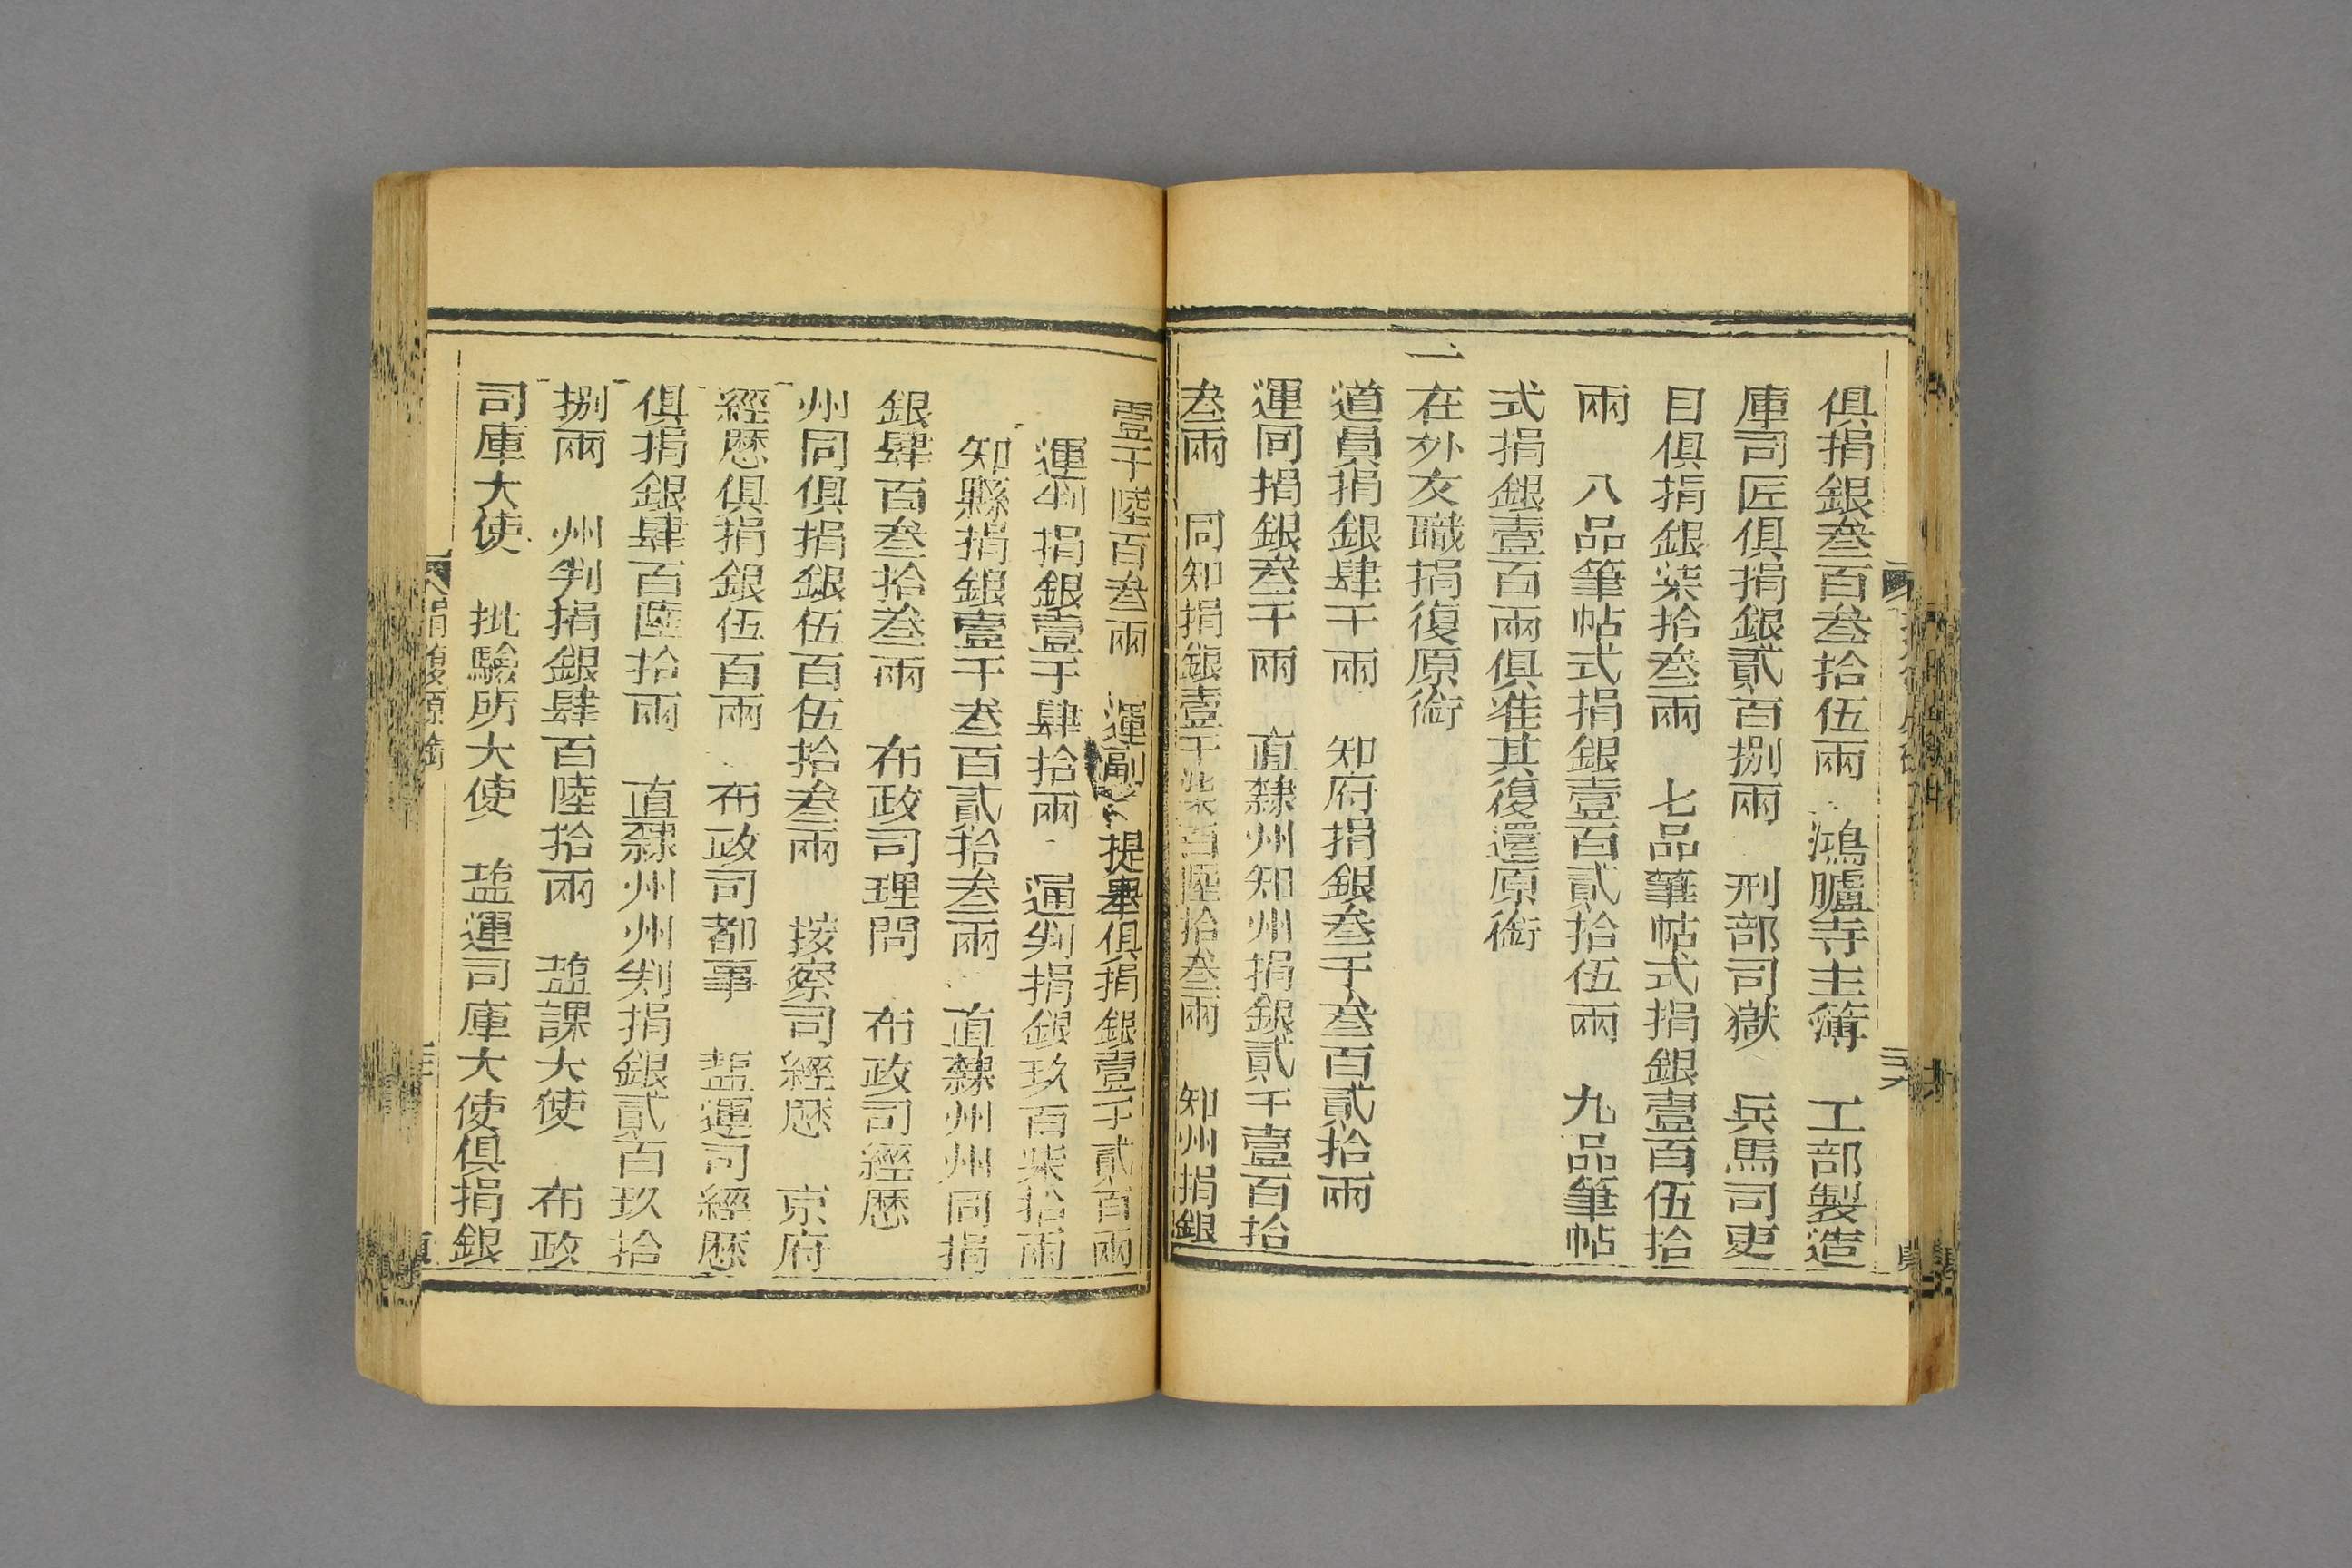 俱捐銀叁百叁拾伍兩　鴻臚寺主簿　工部製造
庫司匠俱捐銀貳百捌兩　刑部司獄　兵馬司吏
目俱捐銀柒拾叁兩　七品筆帖式捐銀壹百伍拾
兩　八品筆帖式捐銀壹百貳拾伍兩　九品筆帖
式捐銀壹百兩俱准其復還原銜
一在外文職捐復原銜
道員捐銀肆千兩　知府捐銀叁千叁百貳拾兩
運同捐銀叁千兩　直隸州知州捐銀貳千壹百拾
叁兩　同知捐銀壹千柒百陸拾叁兩　知州捐銀
壹千陸百叁兩　運副　提舉俱捐銀壹千貳百兩
運判捐銀壹千肆拾兩　通判捐銀玖百柒拾兩
知縣捐銀壹千叁百貳拾叁兩　直隸州州同捐
銀肆百叁拾叁兩　布政司理問　布政司經歷
州同俱捐銀伍百伍拾叁兩　按察司經歷　京府
經歷俱捐銀伍百兩　布政司都事　鹽運司經歷
俱捐銀肆百陸拾兩　直隸州州判捐銀貳百玖拾
捌兩　州判捐銀肆百陸拾兩　鹽課大使　布政
司庫大使　批驗所大使　鹽運司庫大使俱捐銀
捐復原銜